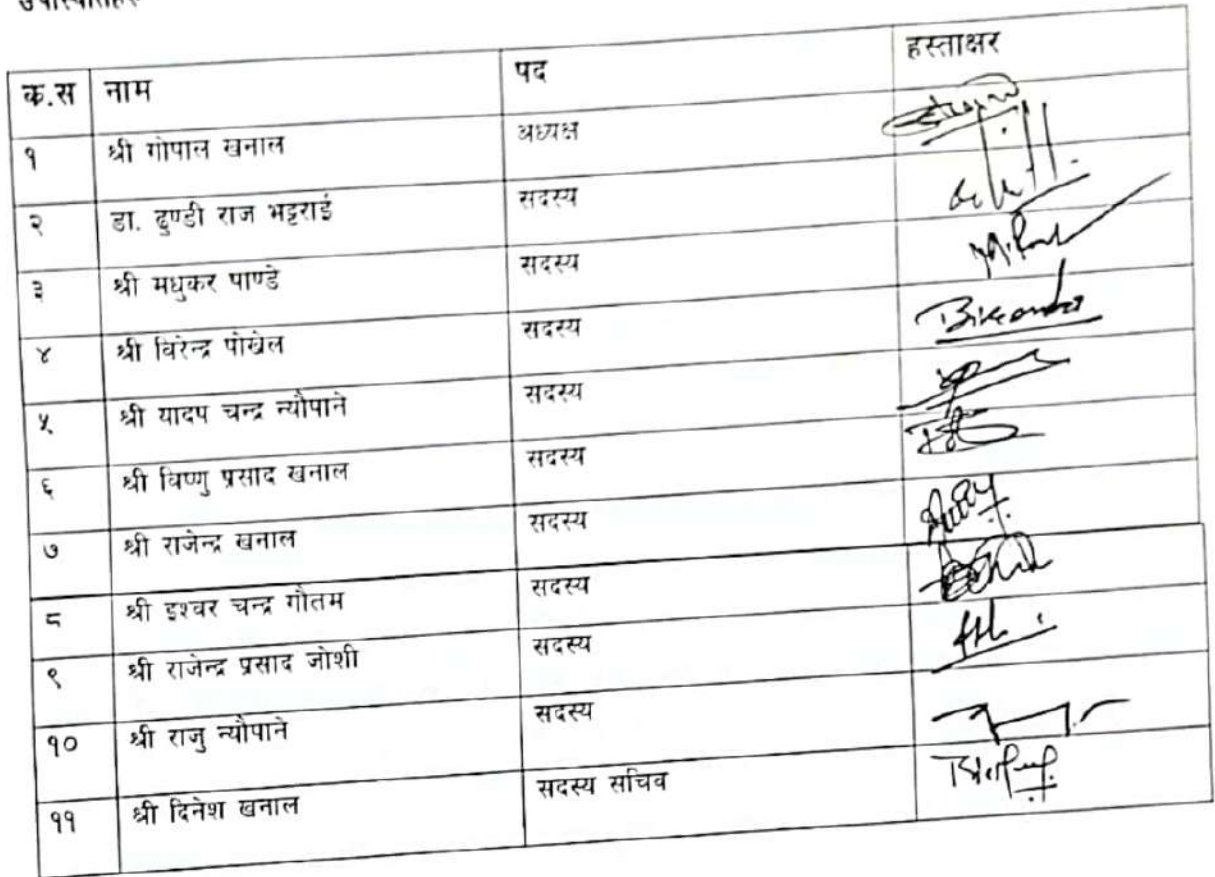 क.स नाम पद हस्ताक्षर
१ श्री गोपाल खनाल अध्यक्ष
२ डा. ढुण्डी राज भट्टराई सदस्य
३ श्री मधुकर पाण्डे सदस्य
४ श्री विरेन्द्र पोखेल सदस्य
५ श्री यादप चन्द्र न्यौपाने सदस्य
६ श्री विष्णु प्रसाद खनाल सदस्य
७ श्री राजेन्द्र खनाल सदस्य
८ श्री इश्वर चन्द्र गौतम सदस्य
९ श्री राजेन्द्र प्रसाद जोशी सदस्य
१० श्री राजु न्यौपाने सदस्य
११ श्री दिनेश खनाल सदस्य सचिव